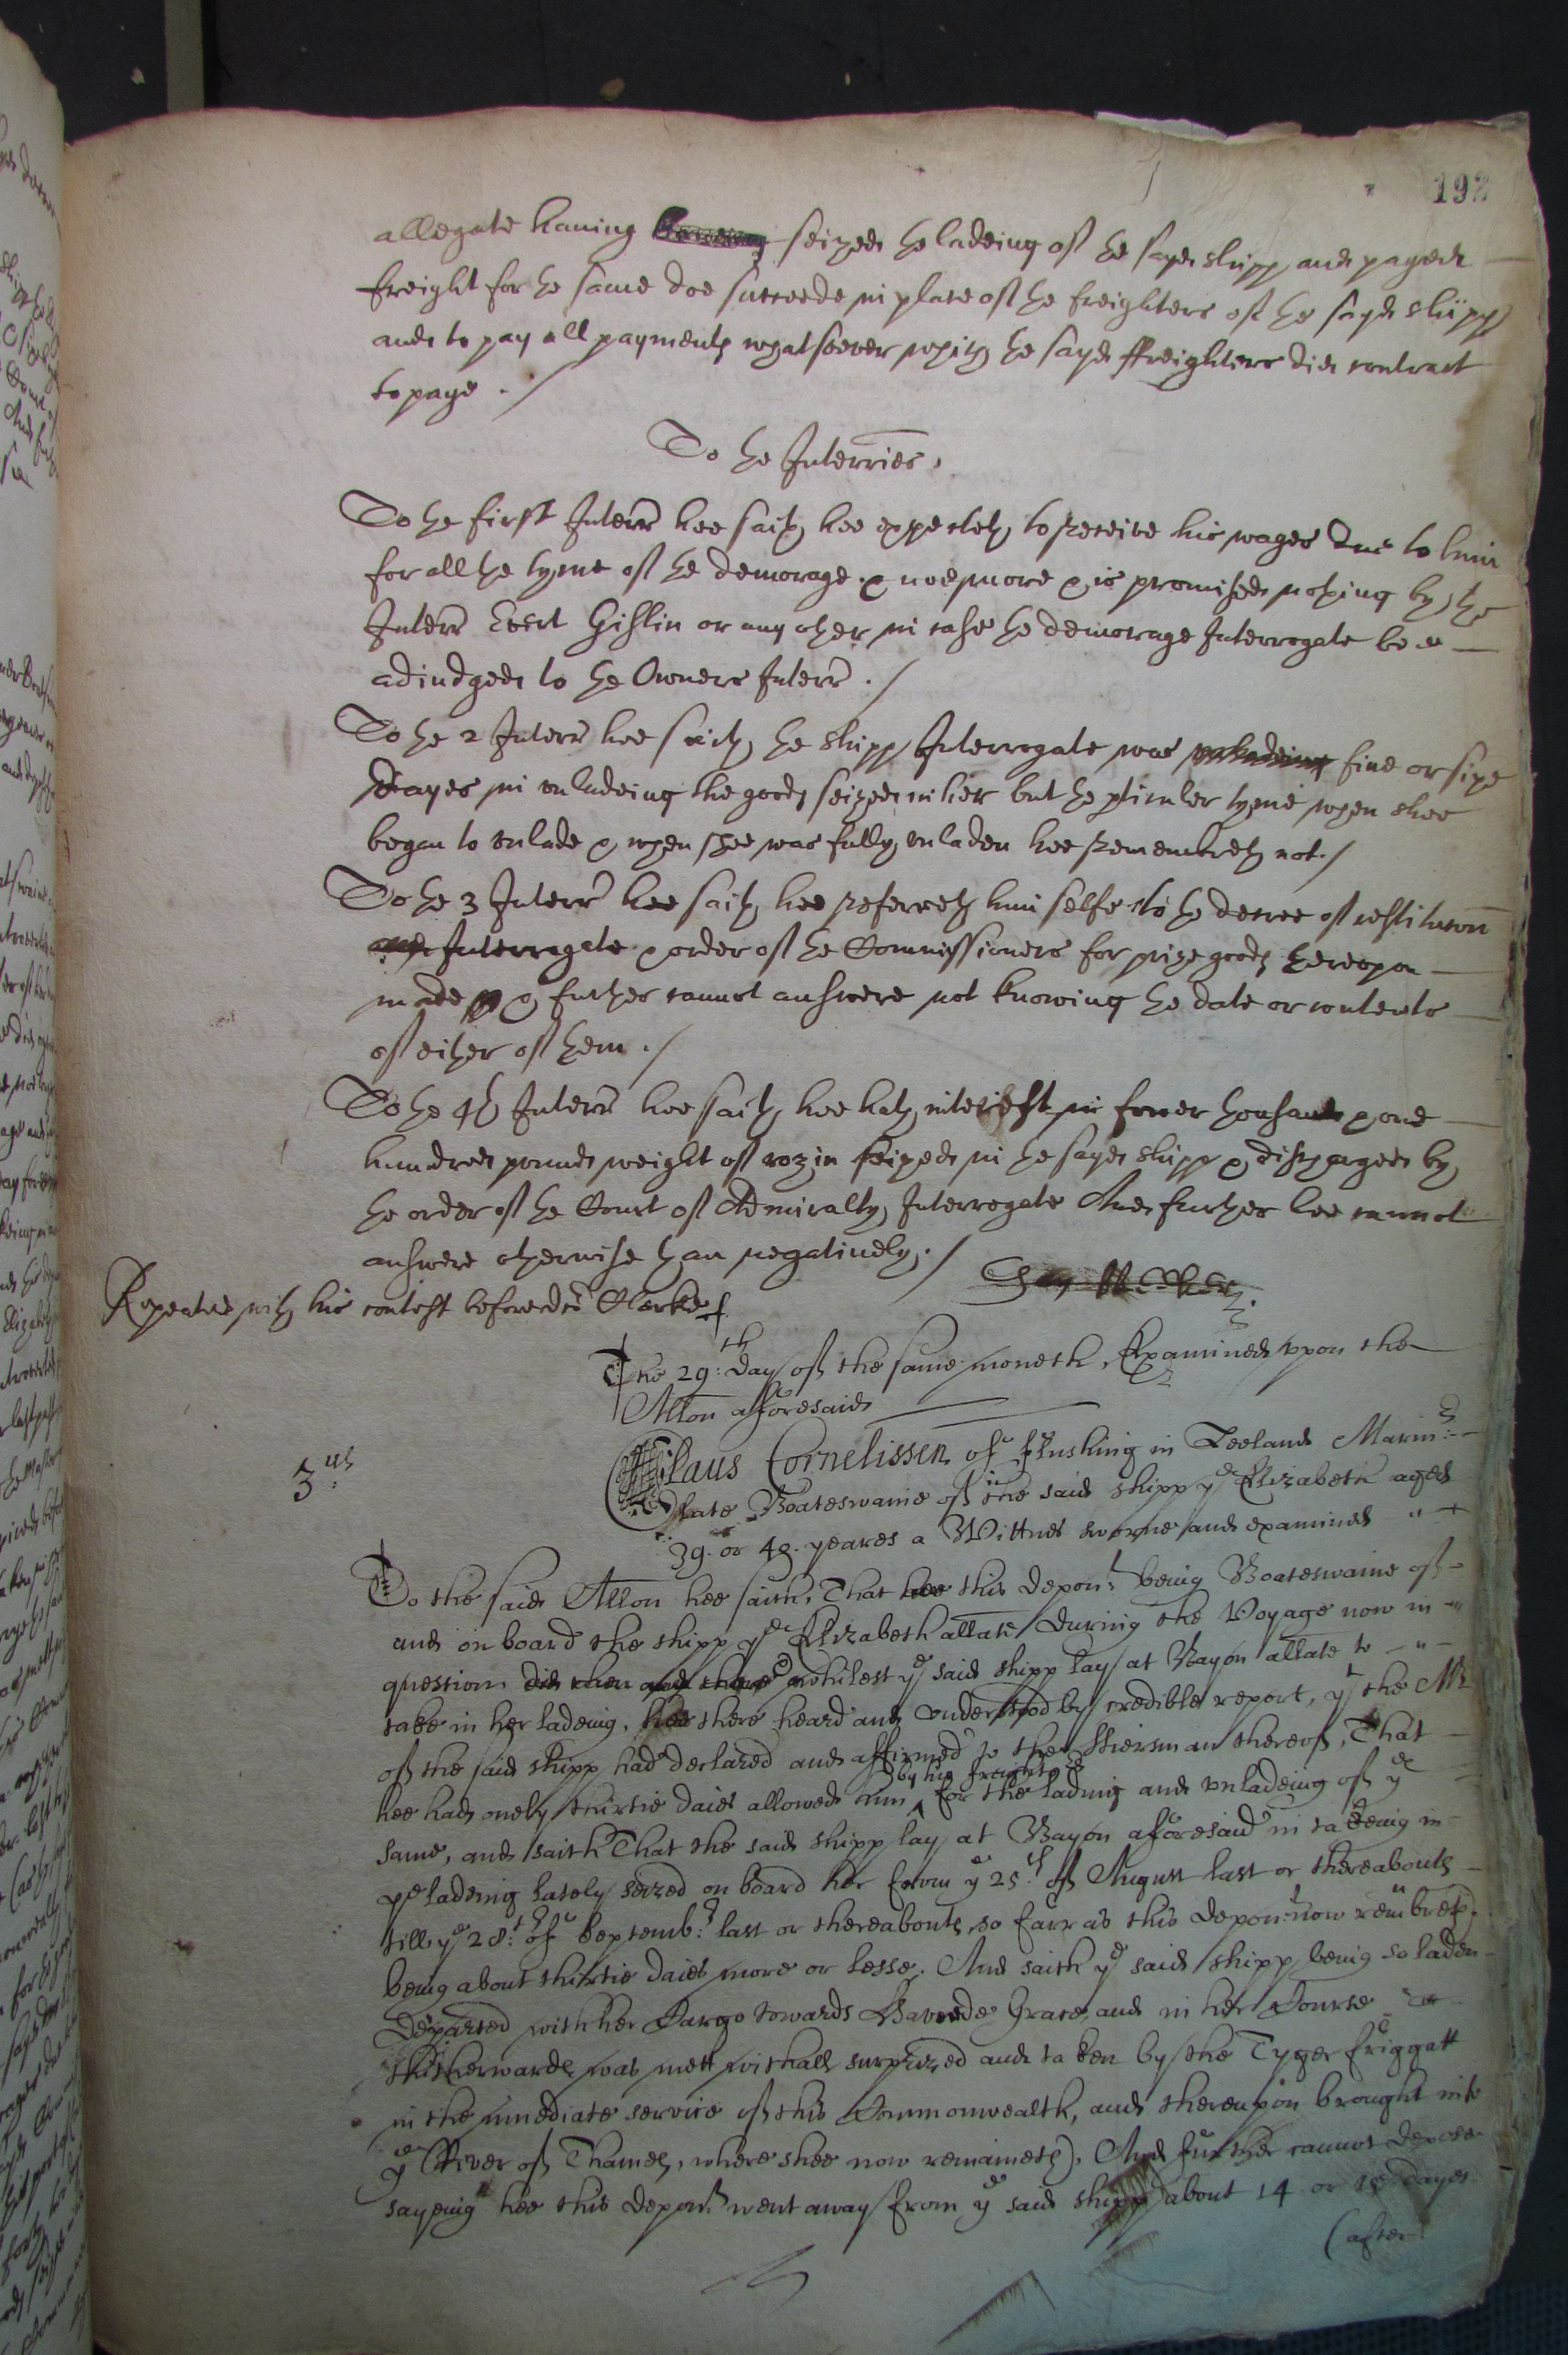 192
allegate having seized the ladeing of the sayd shipp and payed
freight for the same doe succeede in place of the freighters of the sayd shipp
and to pay all payments whatsoever which the sayd ffreighters did contract
to paye ./
To the Interries.
To the first Interr hee saith hee expecteth to receive his wages due to him
for all the tyme of the demorage & noe more & is promised nothing by the
Interr Evert Gislin or any other in case the demorage Interrogate bee
adiudged to the Owners Interr ./
To the 2 Interr hee saith the shipp Interrogate was five or sixe
dayes in unladeing the goods seized in her but the pticuler tyme when shee
began to unlade & when shee was fully unladen hee remembreth not ./
To the 3 Interr hee saith hee referreth himselfe to the decree of restitucon
Interrogate & order of the Commissioners for prize goods thereupon
made & further cannot answere not knowing the date or contents
of either of them ./
To the 4th Interr hee saith hee hath interest in fower thousand & one
hundred pounds weight of rozin seized in the sayd shipp & dischayged by
the order of the Court of Admiralty Interrogate And further hee cannot
answere otherwise than negatively ./
Repeated with his contest before docr Clerke
The 29:th day of the same moneth, Examined upon the
Allon aforesaid
3us
Claus Cornelissen of Flushing in Zeeland Marinr:
late Boateswaine of in the said shipp ye Elizabeth aged
39. or 40. yeares a Wittnes sworne and examined
To the said Allon hee saith, That hee this depont: being Boateswaine of
and on board the shipp ye Elizabeth allate during the Voyage now in
question did then and there whilest ye said shipp lay at Bayon allate to
take in her ladeing, hee there heard and understood by credible report, yt the Mr
of the said shipp had declared and affirmed to the Stiersman thereof, That
hee had onely thirtie daies allowed him ^by his freightrs for the ladeing and unladeing of ye
same, and saith That the said shipp lay at Bayon aforesaid in takeing in
ye ladeing lately seized on board her from ye 25:th of August last or thereabouts
till ye 28:th of Septemb:r last or thereabouts, so farr as this depont: now rembreth,
being about thirtie daies more or lesse. And saith ye said shipp being so laden
departed with her Cargo towards Haverde Grace, and in her Course
thitherwards was mett withall surprized and taken by the Tyger friggatt
in the imediate service of this Commonwealth, and thereupon brought into
ye River of Thames, where shee now remaineth). And further cannot depose
sayeing hee this depont: went away from ye said shipp about 14 or dayes
(after